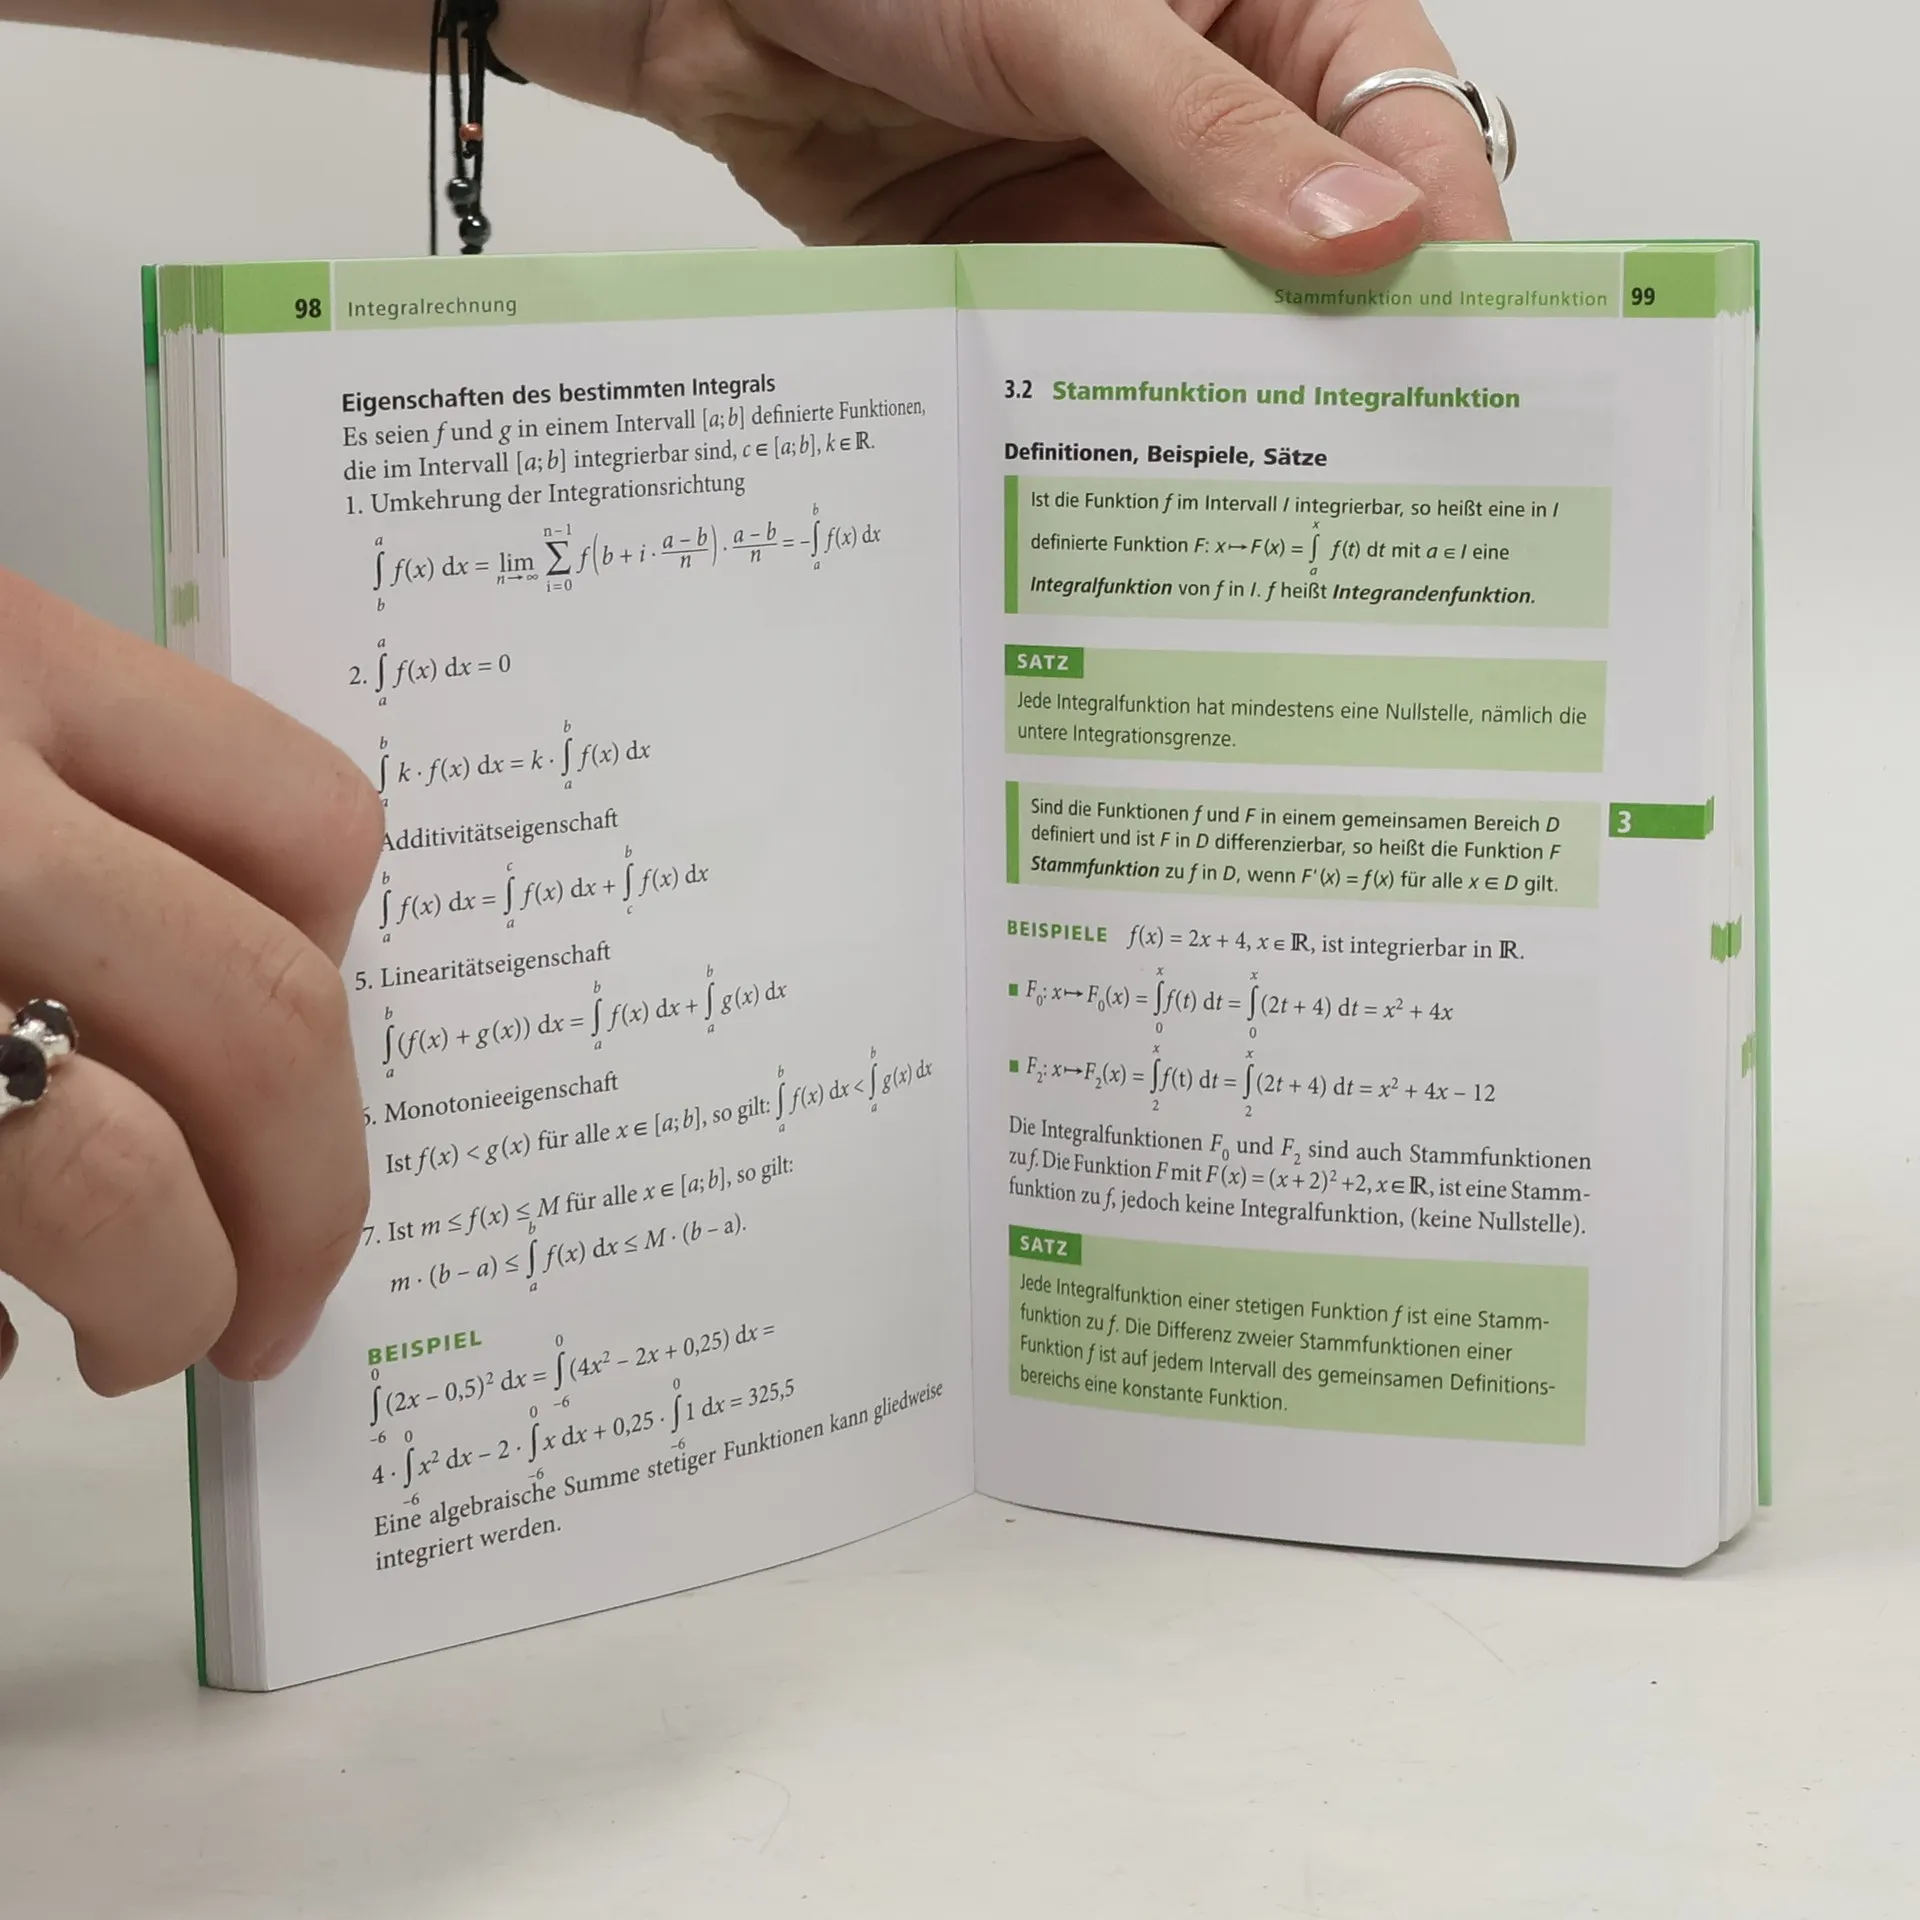 98 Integralrechnung
Eigenschaften des bestimmten Integrals
Es seien f und g in einem Intervall [a; b] definierte Funktionen,
die im Intervall [a; b] integrierbar sind, c ∈ [a; b], k ∈ ℝ.
1. Umkehrung der Integrationsrichtung
∫_b^a f(x) dx = lim_{n→∞} ∑_{i=0}^{n−1} f(b + i · (a − b)/n) · (a − b)/n = −∫_a^b f(x) dx
2. ∫_a^a f(x) dx = 0
∫_a^b k · f(x) dx = k · ∫_a^b f(x) dx
Additivitätseigenschaft
∫_a^b f(x) dx = ∫_a^c f(x) dx + ∫_c^b f(x) dx
5. Linearitätseigenschaft
∫_a^b (f(x) + g(x)) dx = ∫_a^b f(x) dx + ∫_a^b g(x) dx
6. Monotonieeigenschaft
Ist f(x) < g(x) für alle x ∈ [a; b], so gilt: ∫_a^b f(x) dx < ∫_a^b g(x) dx
7. Ist m ≤ f(x) ≤ M für alle x ∈ [a; b], so gilt:
m · (b − a) ≤ ∫_a^b f(x) dx ≤ M · (b − a).
BEISPIEL
∫_{−6}^0 (2x − 0,5)² dx = ∫_{−6}^0 (4x² − 2x + 0,25) dx =
4 · ∫_{−6}^0 x² dx − 2 · ∫_{−6}^0 x dx + 0,25 · ∫_{−6}^0 1 dx = 325,5
Eine algebraische Summe stetiger Funktionen kann gliedweise
integriert werden.
Stammfunktion und Integralfunktion 99
3.2 Stammfunktion und Integralfunktion
Definitionen, Beispiele, Sätze
Ist die Funktion f im Intervall I integrierbar, so heißt eine in I
definierte Funktion F: x ↦ F(x) = ∫_a^x f(t) dt mit a ∈ I eine
Integralfunktion von f in I. f heißt Integrandenfunktion.
SATZ
Jede Integralfunktion hat mindestens eine Nullstelle, nämlich die
untere Integrationsgrenze.
Sind die Funktionen f und F in einem gemeinsamen Bereich D
definiert und ist F in D differenzierbar, so heißt die Funktion F
Stammfunktion zu f in D, wenn F'(x) = f(x) für alle x ∈ D gilt.
3
BEISPIELE f(x) = 2x + 4, x ∈ ℝ, ist integrierbar in ℝ.
■ F₀: x ↦ F₀(x) = ∫_0^x f(t) dt = ∫_0^x (2t + 4) dt = x² + 4x
■ F₂: x ↦ F₂(x) = ∫_2^x f(t) dt = ∫_2^x (2t + 4) dt = x² + 4x − 12
Die Integralfunktionen F₀ und F₂ sind auch Stammfunktionen
zu f. Die Funktion F mit F(x) = (x + 2)² + 2, x ∈ ℝ, ist eine Stamm-
funktion zu f, jedoch keine Integralfunktion, (keine Nullstelle).
SATZ
Jede Integralfunktion einer stetigen Funktion f ist eine Stamm-
funktion zu f. Die Differenz zweier Stammfunktionen einer
Funktion f ist auf jedem Intervall des gemeinsamen Definitions-
bereichs eine konstante Funktion.